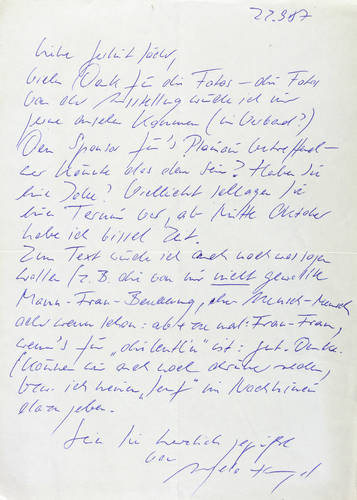 22.9.87
Liebe
vielen Dank für die Fotos – die Fotos
von der Ausstellung würde ich mir
gerne ansehen kommen (in Verbad?)
Den Sponsor für's Planium betreffend –
wer könnte das denn sein? Haben Sie
eine Idee? Vielleicht schlagen Sie
einen Termin vor, ab Mitte Oktober
habe ich bissel Zeit.
Zum Text würde ich auch noch was sagen
wollen (z.B. die von mir nicht gewollte
Mann-Frau-Benennung, eher Mensch-Mensch
oder wenn schon: ab & zu mal: Frau-Frau,
wenn's für "
" ist: gut. Danke.
(Können wir auch noch drüber reden,
bzw. ich meinen „Senf“ im Nachhinein
dazu geben.
Seien Sie herzlich gegrüßt
von